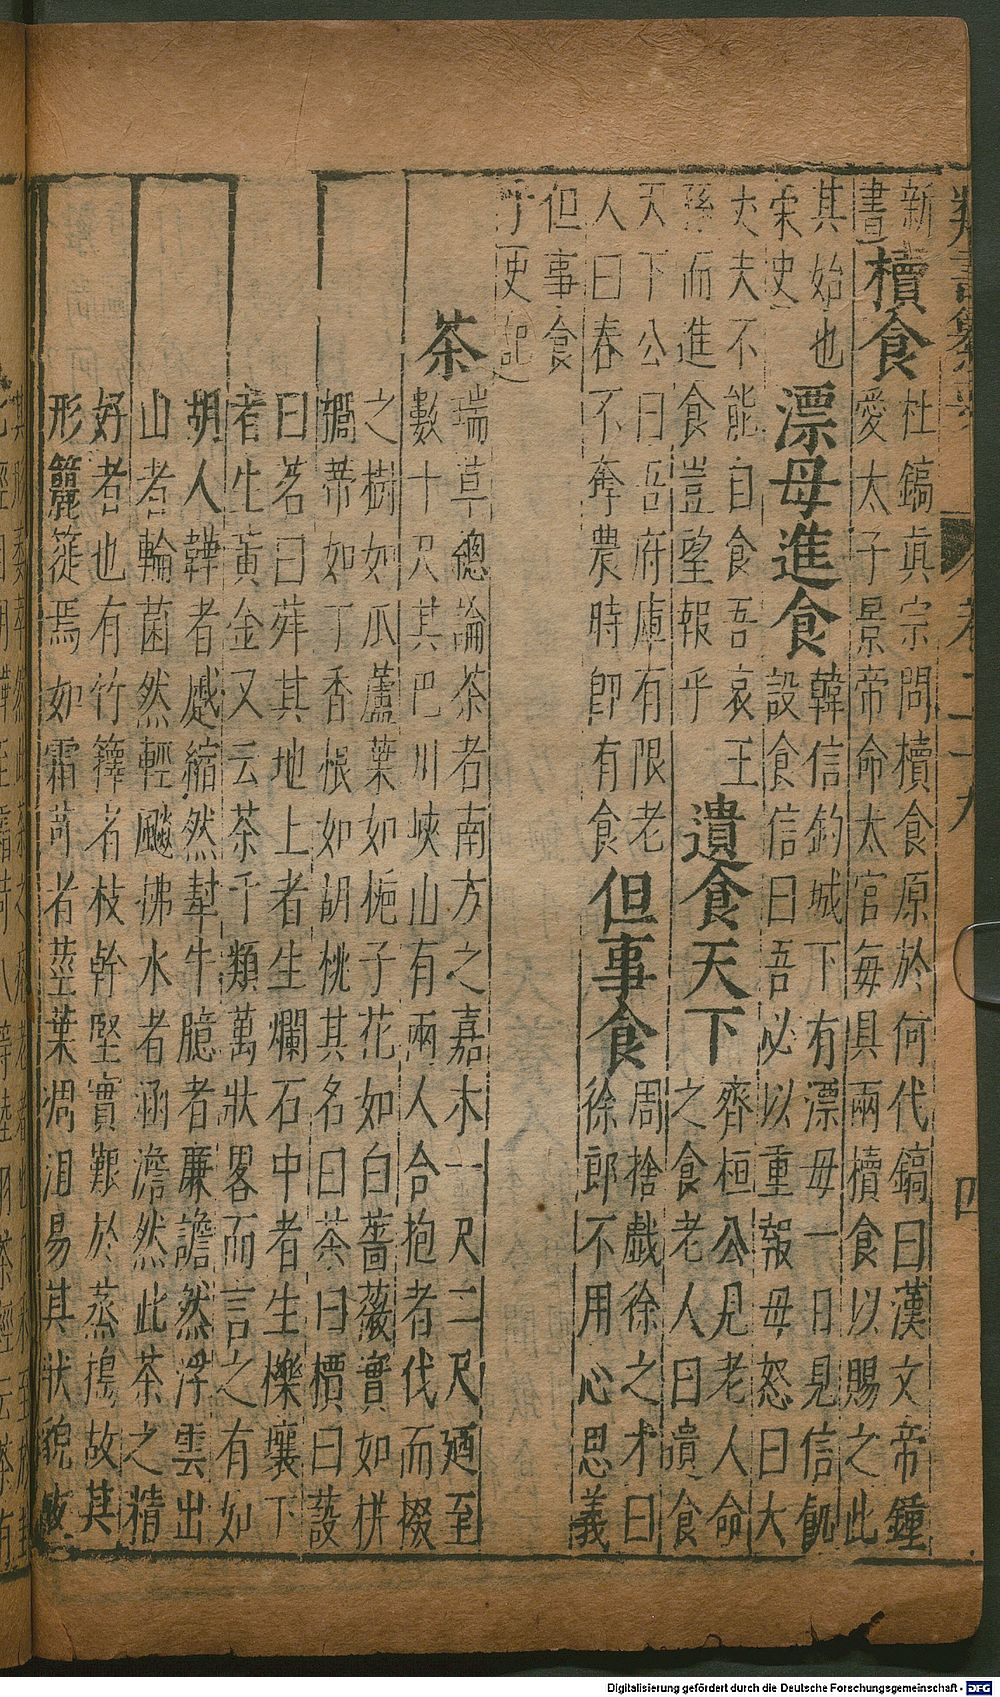 新書
櫝食
杜鎬眞宗問櫝食原於何代鎬曰漢文帝鍾
愛太子景帝命太官每具兩櫝食以賜之此
其始也
宋史
漂母進食
韓信釣城下有漂母一日見信飢
設食信曰吾必以重報母怒曰大
丈夫不能自食吾哀王
孫而進食豈望報乎
遺食天下
齊桓公見老人命
之食老人曰請遺食
天下公曰吾府庫有限老
人曰春不奪農時即有食
但事食
周捨戲徐之才曰
徐郎不用心思義
但事食
乎更起
茶
瑞草總論茶者南方之嘉木一尺二尺廼至
數十尺其巴川峽山有兩人合抱者伐而掇
之樹如瓜蘆葉如梔子花如白薔薇實如栟
櫚蒂如丁香根如胡桃其名曰茶曰檟曰蔎
曰茗曰荈其地上者生爛石中者生櫟壤下
者生黃金又云茶千類萬狀畧而言之有如
胡人鞾者蹙縮然犎牛臆者廉襜然浮雲出
山者輪菌然輕飈拂水者涵澹然此茶之精
好者也有竹籜者枝幹堅實艱於蒸搗故其
形籭簁焉如霜荷者莖葉凋沮易其狀貌故
卷二十九
四
Digitalisierung gefördert durch die Deutsche Forschungsgemeinschaft - DFG